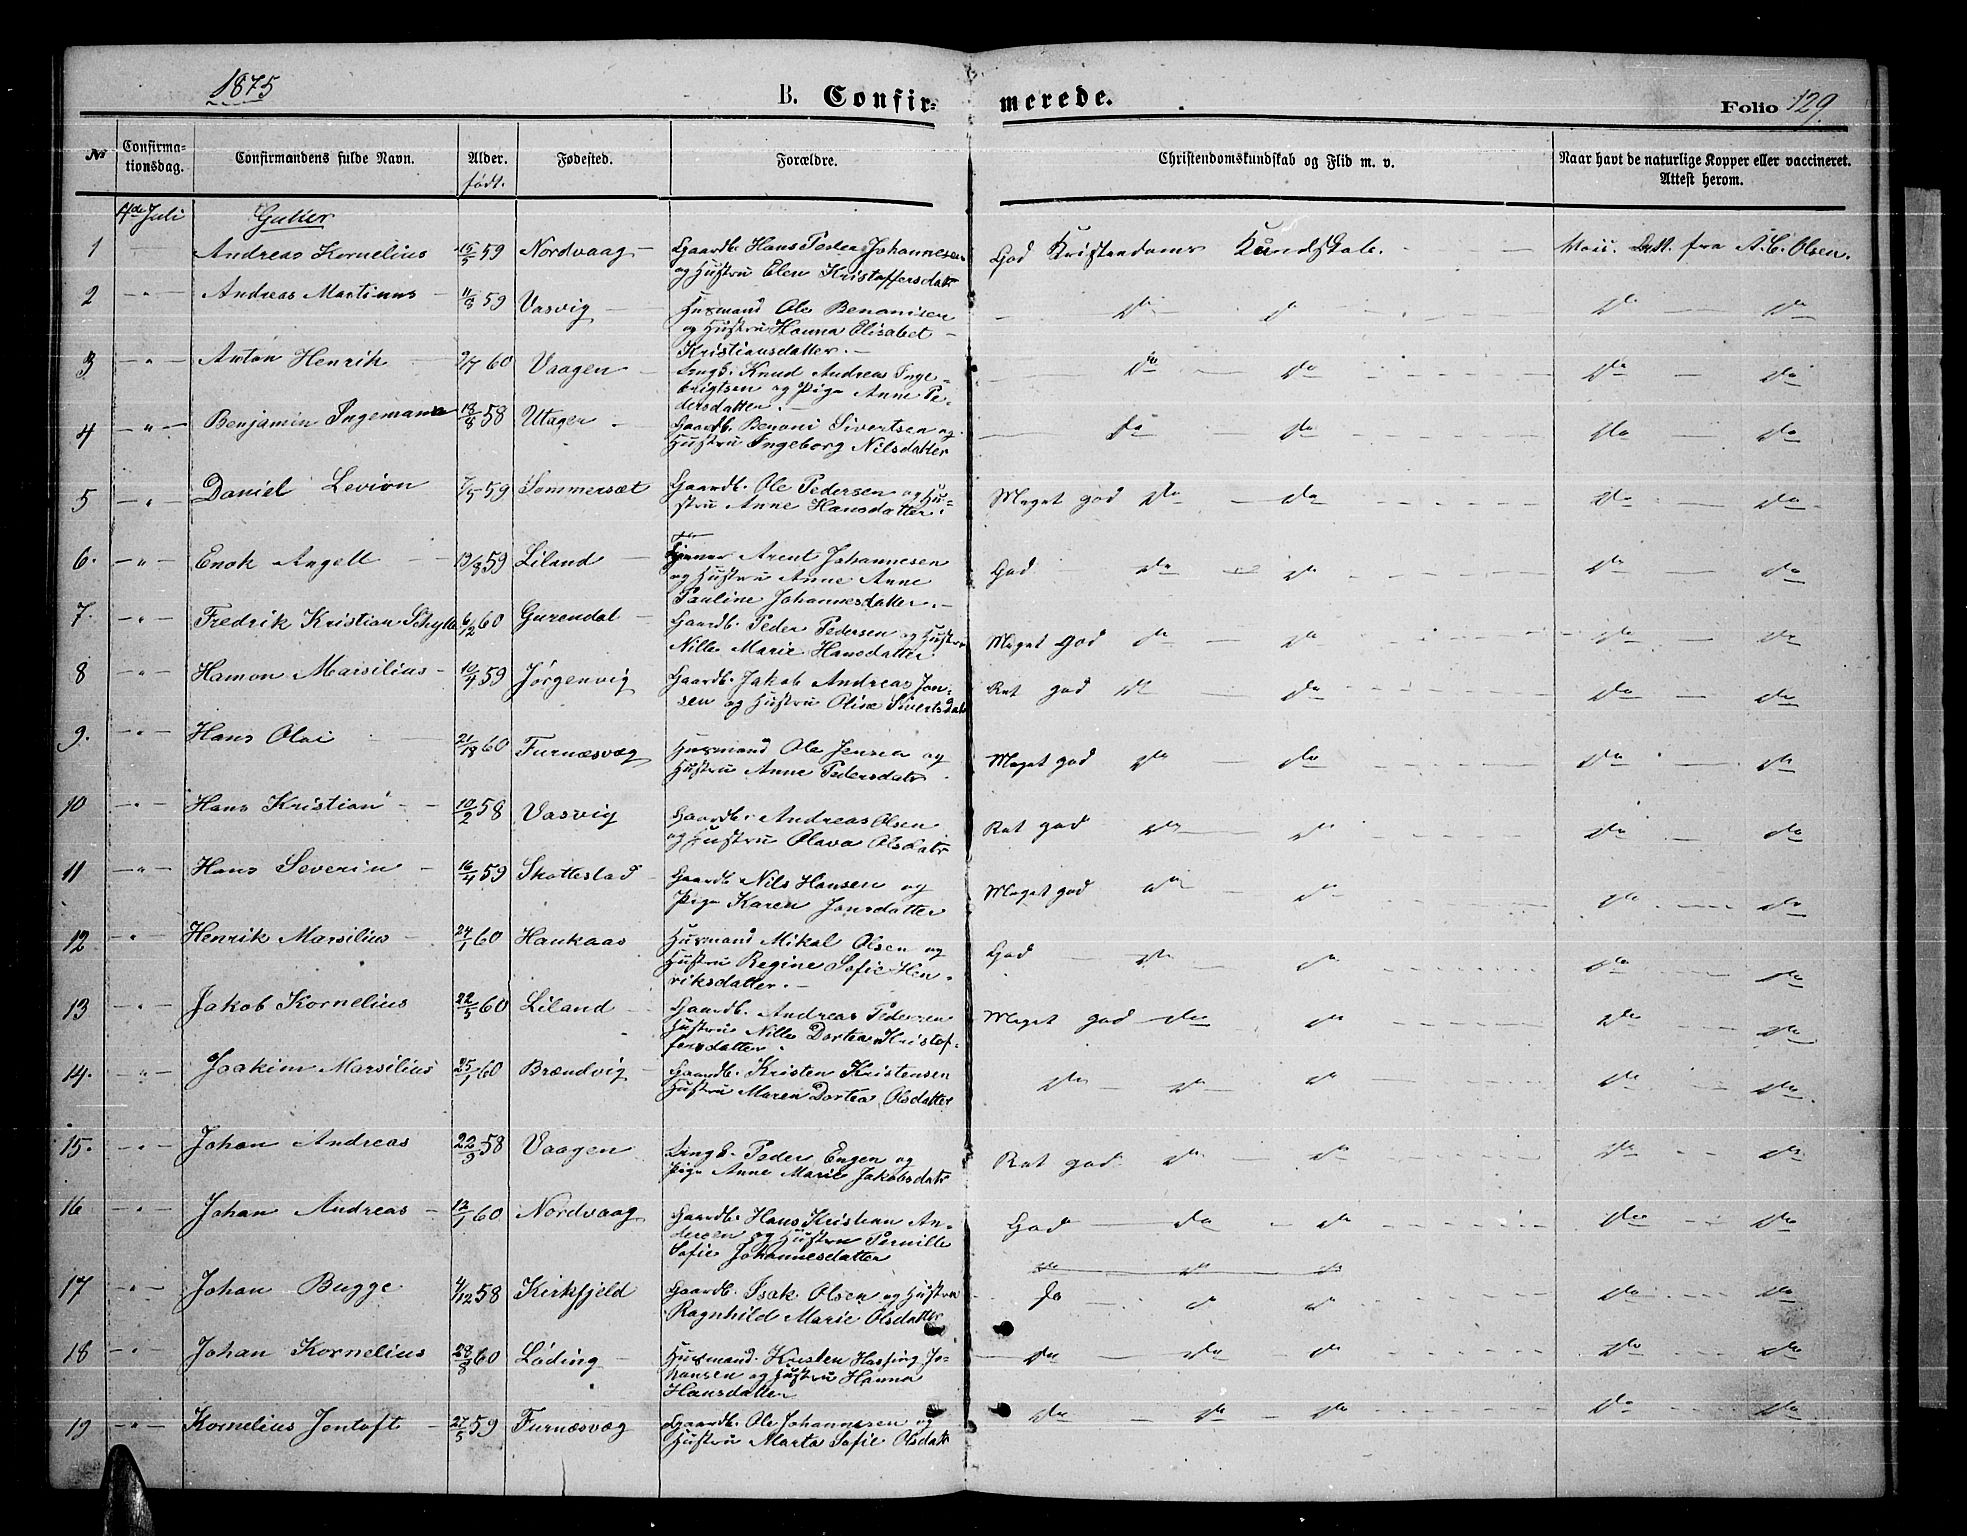 1875
B. Confir-
merede.
Folio 129.
No
Confirma-
tionsdag.
Confirmandens fulde Navn.
Alder.
født.
Fødested.
Forældre.
Christendomskundskab og Flid m. v.
Naar havt de naturlige Kopper eller vaccineret.
Attest herom.
4de Juli Gutter
1 Andreas Kornelius 15/5 59 Nordvaag Gaardb. Hans Peder Johannesen
og Hustru Elen Kristoffersdatr
God Kristendoms Kundskab. fra A. C. Olsen.
2 " Andreas Martinus 11/8 59 Vasvig Husmand Ole Benonisen
og Hustru Hanna Elisabet
Kristiansdatter.
do do do do
3 " Anton Henrik 2/7 60 Vaagen Ungk. Knud Andreas Inge-
brigtsen og Pige Anne Pe-
dersdatter.
do do do do
4 " Benjamin Ingemann 18/8 58 Utager Gaardb. Benoni Sivertsen og
Hustru Ingeborg Nilsdatter
do do do do
5 " Daniel Levion 7/5 59 Sommersæt Gaardb. Ole Pedersen og Hu-
stru Anne Hansdatter.
Meget god do do do do
6. " Enok Angell 13/8 59 Liland Arent Johannesen
og Hustru Anne Anne
Pauline Johannesdatter.
God do do do do
7. " Fredrik Kristian Schytte 6/12 60 Gurendal Gaardb. Peder Pedersen og Hustru
Nille Marie Hansdatter
Meget God do do do do
8 " Hamon Marsilius 10/4 59 Jørgenvig Gaardb. Jakob Andreas Jon-
sen og Hustru Olise Sivertsdatr
Ret god do do do do
9. " Hans Olai 60 Furnæsvæg Husmand Ole Jensen og
Hustru Anne Pedersdatr
Meget god do do do do
10 " Hans Kristian 10/2 58 Vasvig Gaardb. Andreas Olsen
og Hustru Olava Olsdatr
Ret god do do do do
11 " Hans Severin 16/4 59 Skottestad Gaardb. Nils Hansen og
Pige Karen Jonsdatter
Meget god do do do do
12 " Henrik Marsilius 24/1 60 Haukaas Husmand Mikal Olsen og
Hustru Regine Sofie Hen-
riksdatter.
God do do do do
13 " Jakob Kornelius 22/5 60 Liland Gaardb. Andreas Pedersen
Hustru Nille Dortea Kristof-
fersdatter.
Meget god do do do do
14. " Joakim Marsilius 25/1 60 Brændvig Gaardb. Kristen Kristensen
Hustru Maren Dortea Olsdatter
do do do do do
15. " Johan Andreas 22/9 58 Vaagen Ungk. Peder Engen og
Pige Anne Marie Jakobsdatr
Ret god do do do do
16 " Johan Andreas 12/1 60 Nordvaag Gaardb. Hans Kristian An-
dersen og Hustru Pernille
Sofie Johannesdatter
God do do do do
do do do
17 " Johan Bugge 4/12 58 Kirkfjeld Gaardb. Isak Olsen og Hustru
Ragnhild Marie Olsdatter
do do do do do
18 " Johan Kornelius 28/8 60 Løding Husmand Kristen Hasfing Jo-
hansen og Hustru Hanna
Hansdatter
do do do do do
19 " Kornelius Jentoft 27/5 59 Furnæsvæg Gaardb. Ole Johannesen og
Hustru Marta Sofie Olsdatt
do do do do do